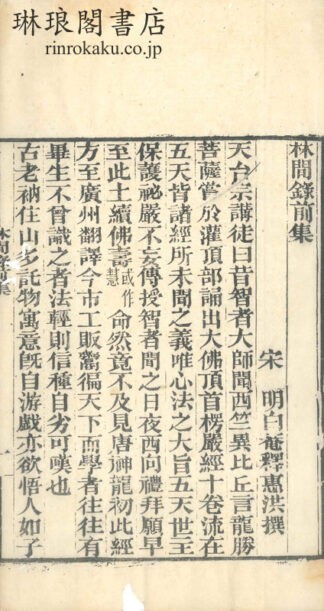 琳琅閣書店
rinrokaku.co.jp
林間錄前集
宋　明白菴釋惠洪撰
天台宗講徒曰昔智者大師聞西竺異比丘言龍勝
菩薩嘗於灌頂部誦出大佛頂首楞嚴經十卷流在
五天皆諸經所未聞之義唯心法之大旨五天世主
保護祕嚴不妄傳授智者聞之日夜西向禮拜願早
至此土續佛壽或作慧命然竟不及見唐神龍初此經
方至廣州翻譯今市工販鬻徧天下而學者往往有
畢生不曾識之者法輕則信種自劣可嘆也
古老衲住山多託物寓意旣自游戲亦欲悟人如子
林間錄前集